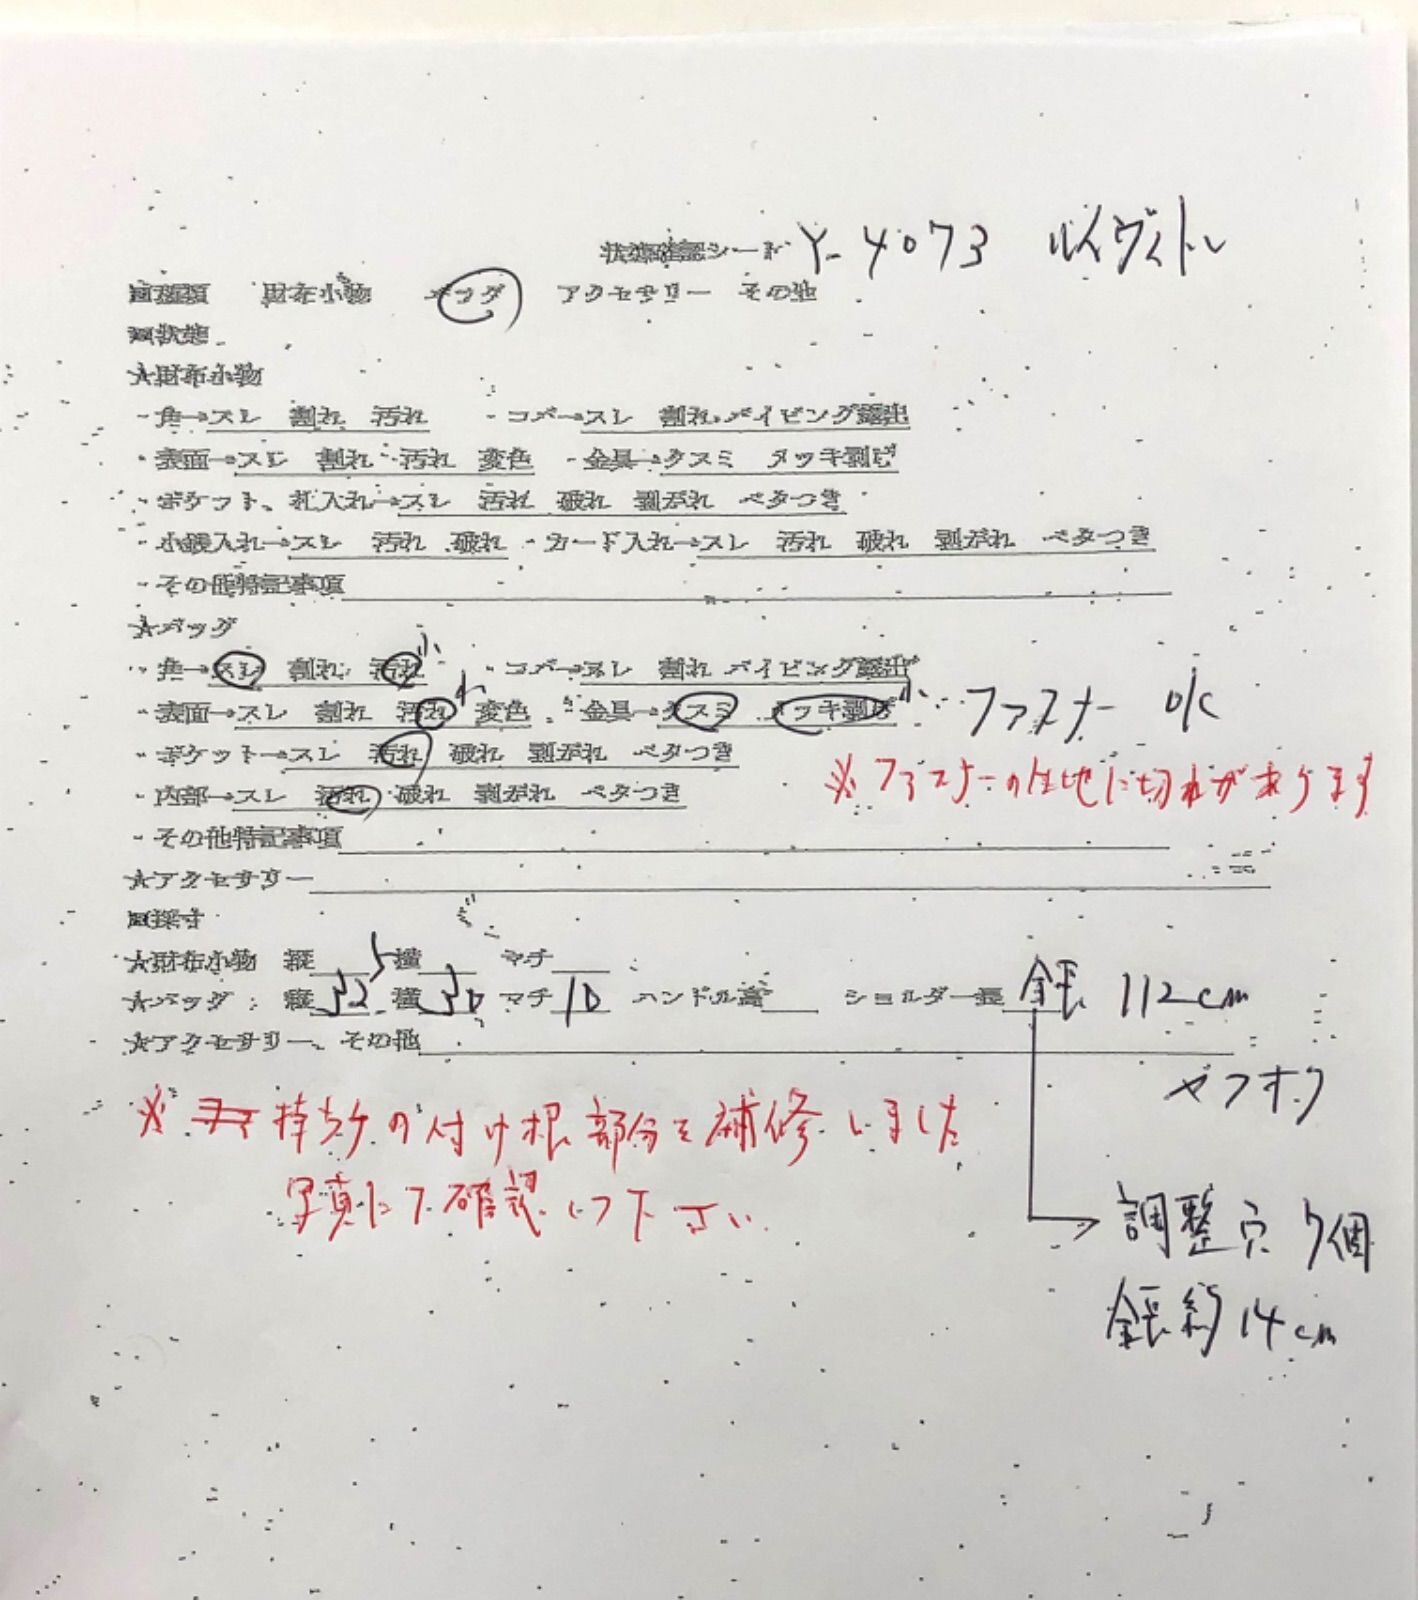 状態確認シート Y-4073 ルイヴィトン
■種類 財布小物 バッグ アクセサリー その他
■状態
★財布小物
・角→スレ 割れ 汚れ ・コバ→スレ 割れ パイピング露出
・表面→スレ 割れ 汚れ 変色 ・金具→クスミ メッキ剥げ
・ポケット、札入れ→スレ 汚れ 破れ 剥がれ ベタつき
・小銭入れ→スレ 汚れ 破れ ・カード入れ→スレ 汚れ 破れ 剥がれ ベタつき
・その他特記事項
★バッグ
・角→スレ 割れ 汚れ 小 ・コバ→スレ 割れ パイピング露出
・表面→スレ 割れ 汚れ 小 変色 ・金具→クスミ メッキ剥げ 小 ファスナー OK
・ポケット→スレ 汚れ 破れ 剥がれ ベタつき
※ファスナーの生地に切れがあります
・内部→スレ 汚れ 破れ 剥がれ ベタつき
・その他特記事項
★アクセサリー
■採寸
★財布小物 縦 横 マチ
★バッグ 縦 32 横 30 マチ 10 ハンドル高 ショルダー長 全長 112cm
★アクセサリー、その他
ヤフオク
※ 持ち手の付け根部分を補修しました
写真にて確認して下さい
調整穴 7個
全長約 14cm